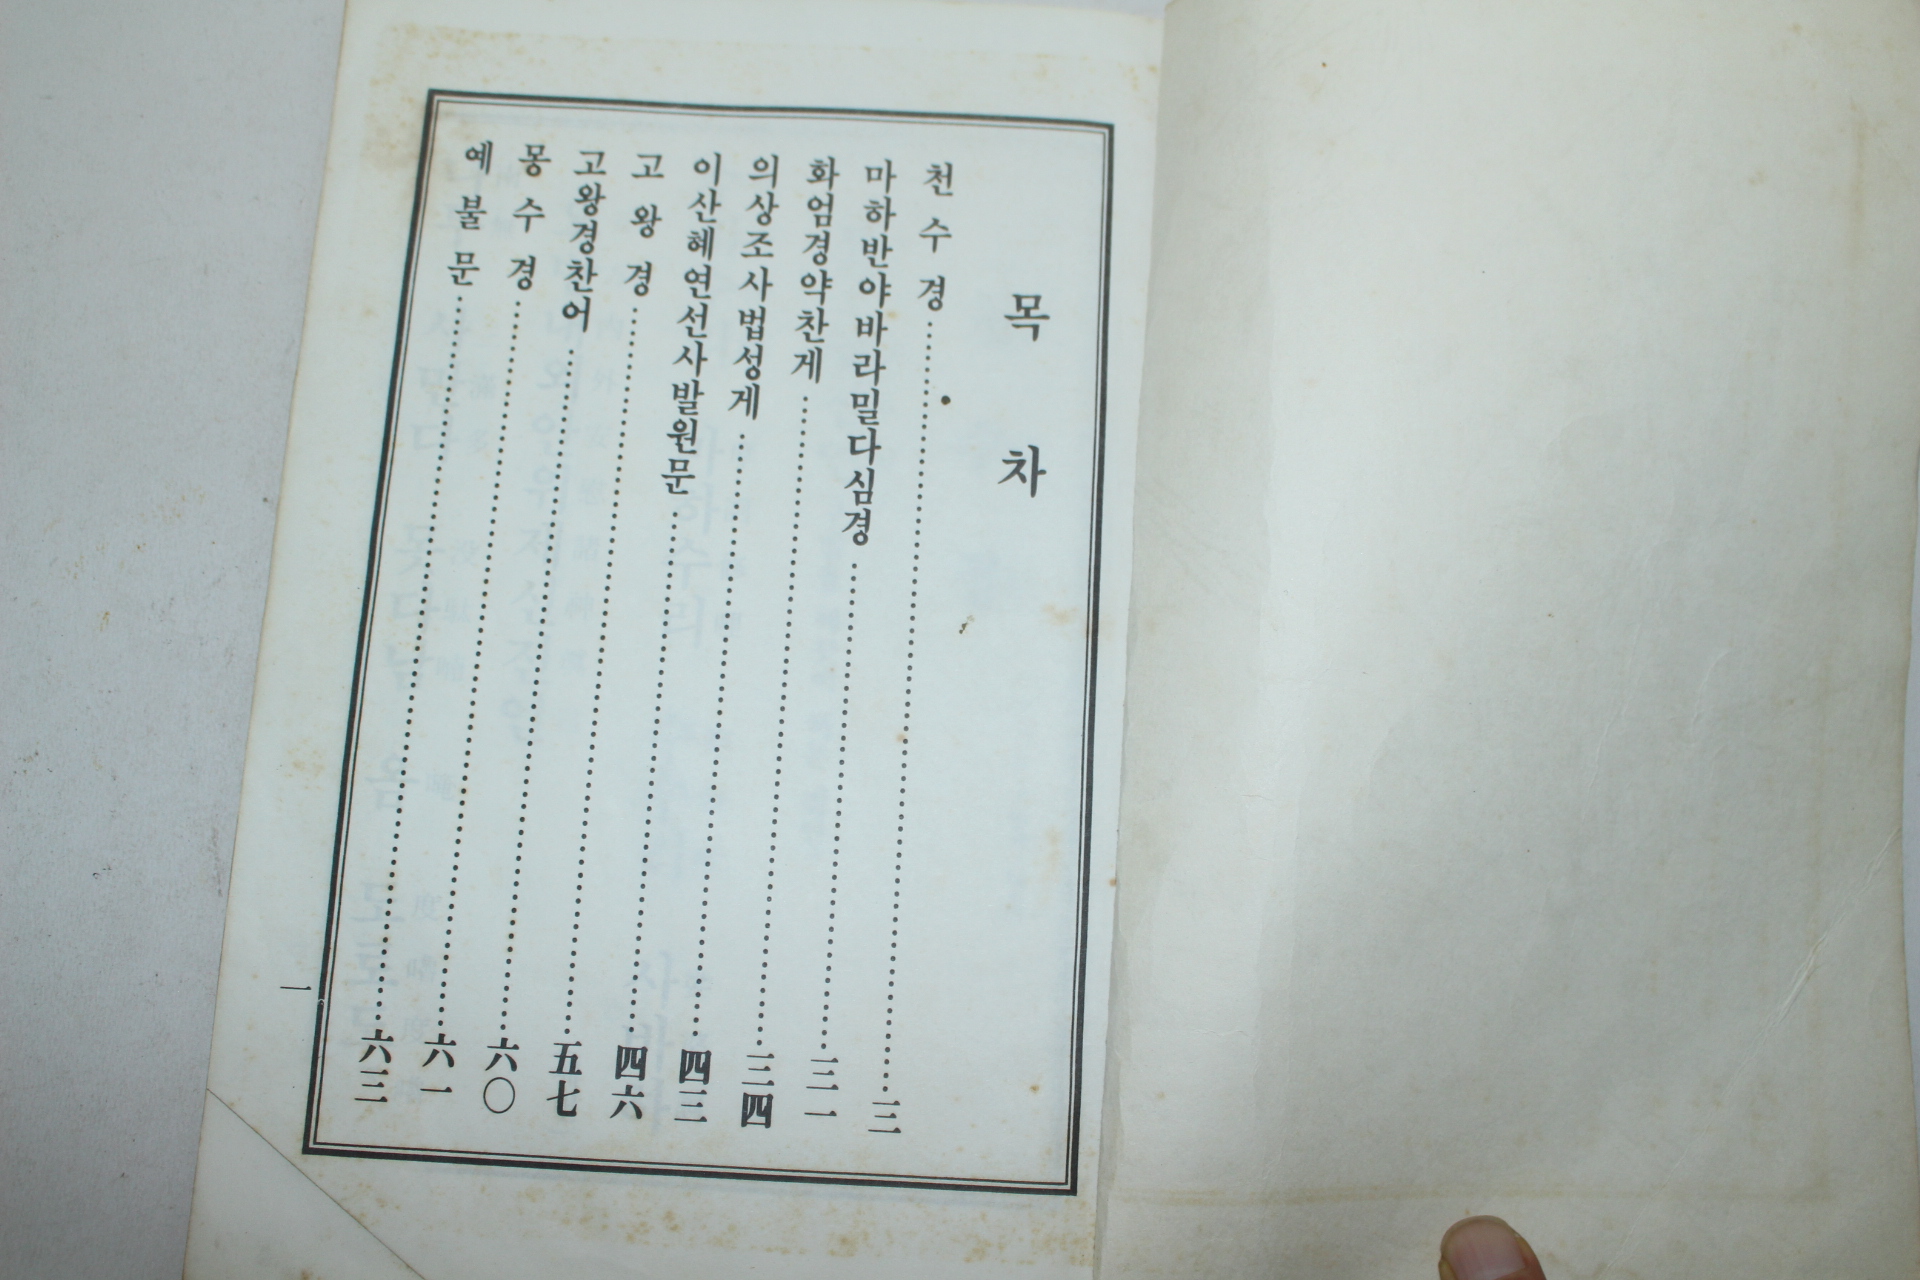 목 차
천수경 三
마하반야바라밀다심경 三一
화엄경약찬게 三四
의상조사법성게 四三
이산혜연선사발원문 四六
고왕경 五七
고왕경찬어 六〇
몽수경 六一
예불문 六三
一